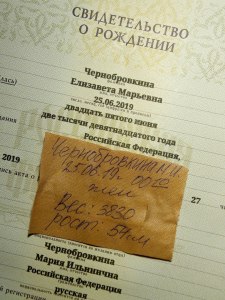 СВИДЕТЕЛЬСТВО
О РОЖДЕНИИ
Чернобровкина
Елизавета Марьевна
25.06.2019
двадцать пятого июня
две тысячи девятнадцатого года
Российская Федерация,
Чернобровкина М.И.
25.06.19г.
жен
2019
27
Вес: 3830
рост: 54 см
Чернобровкина
Мария Ильинична
Российская Федерация
русская